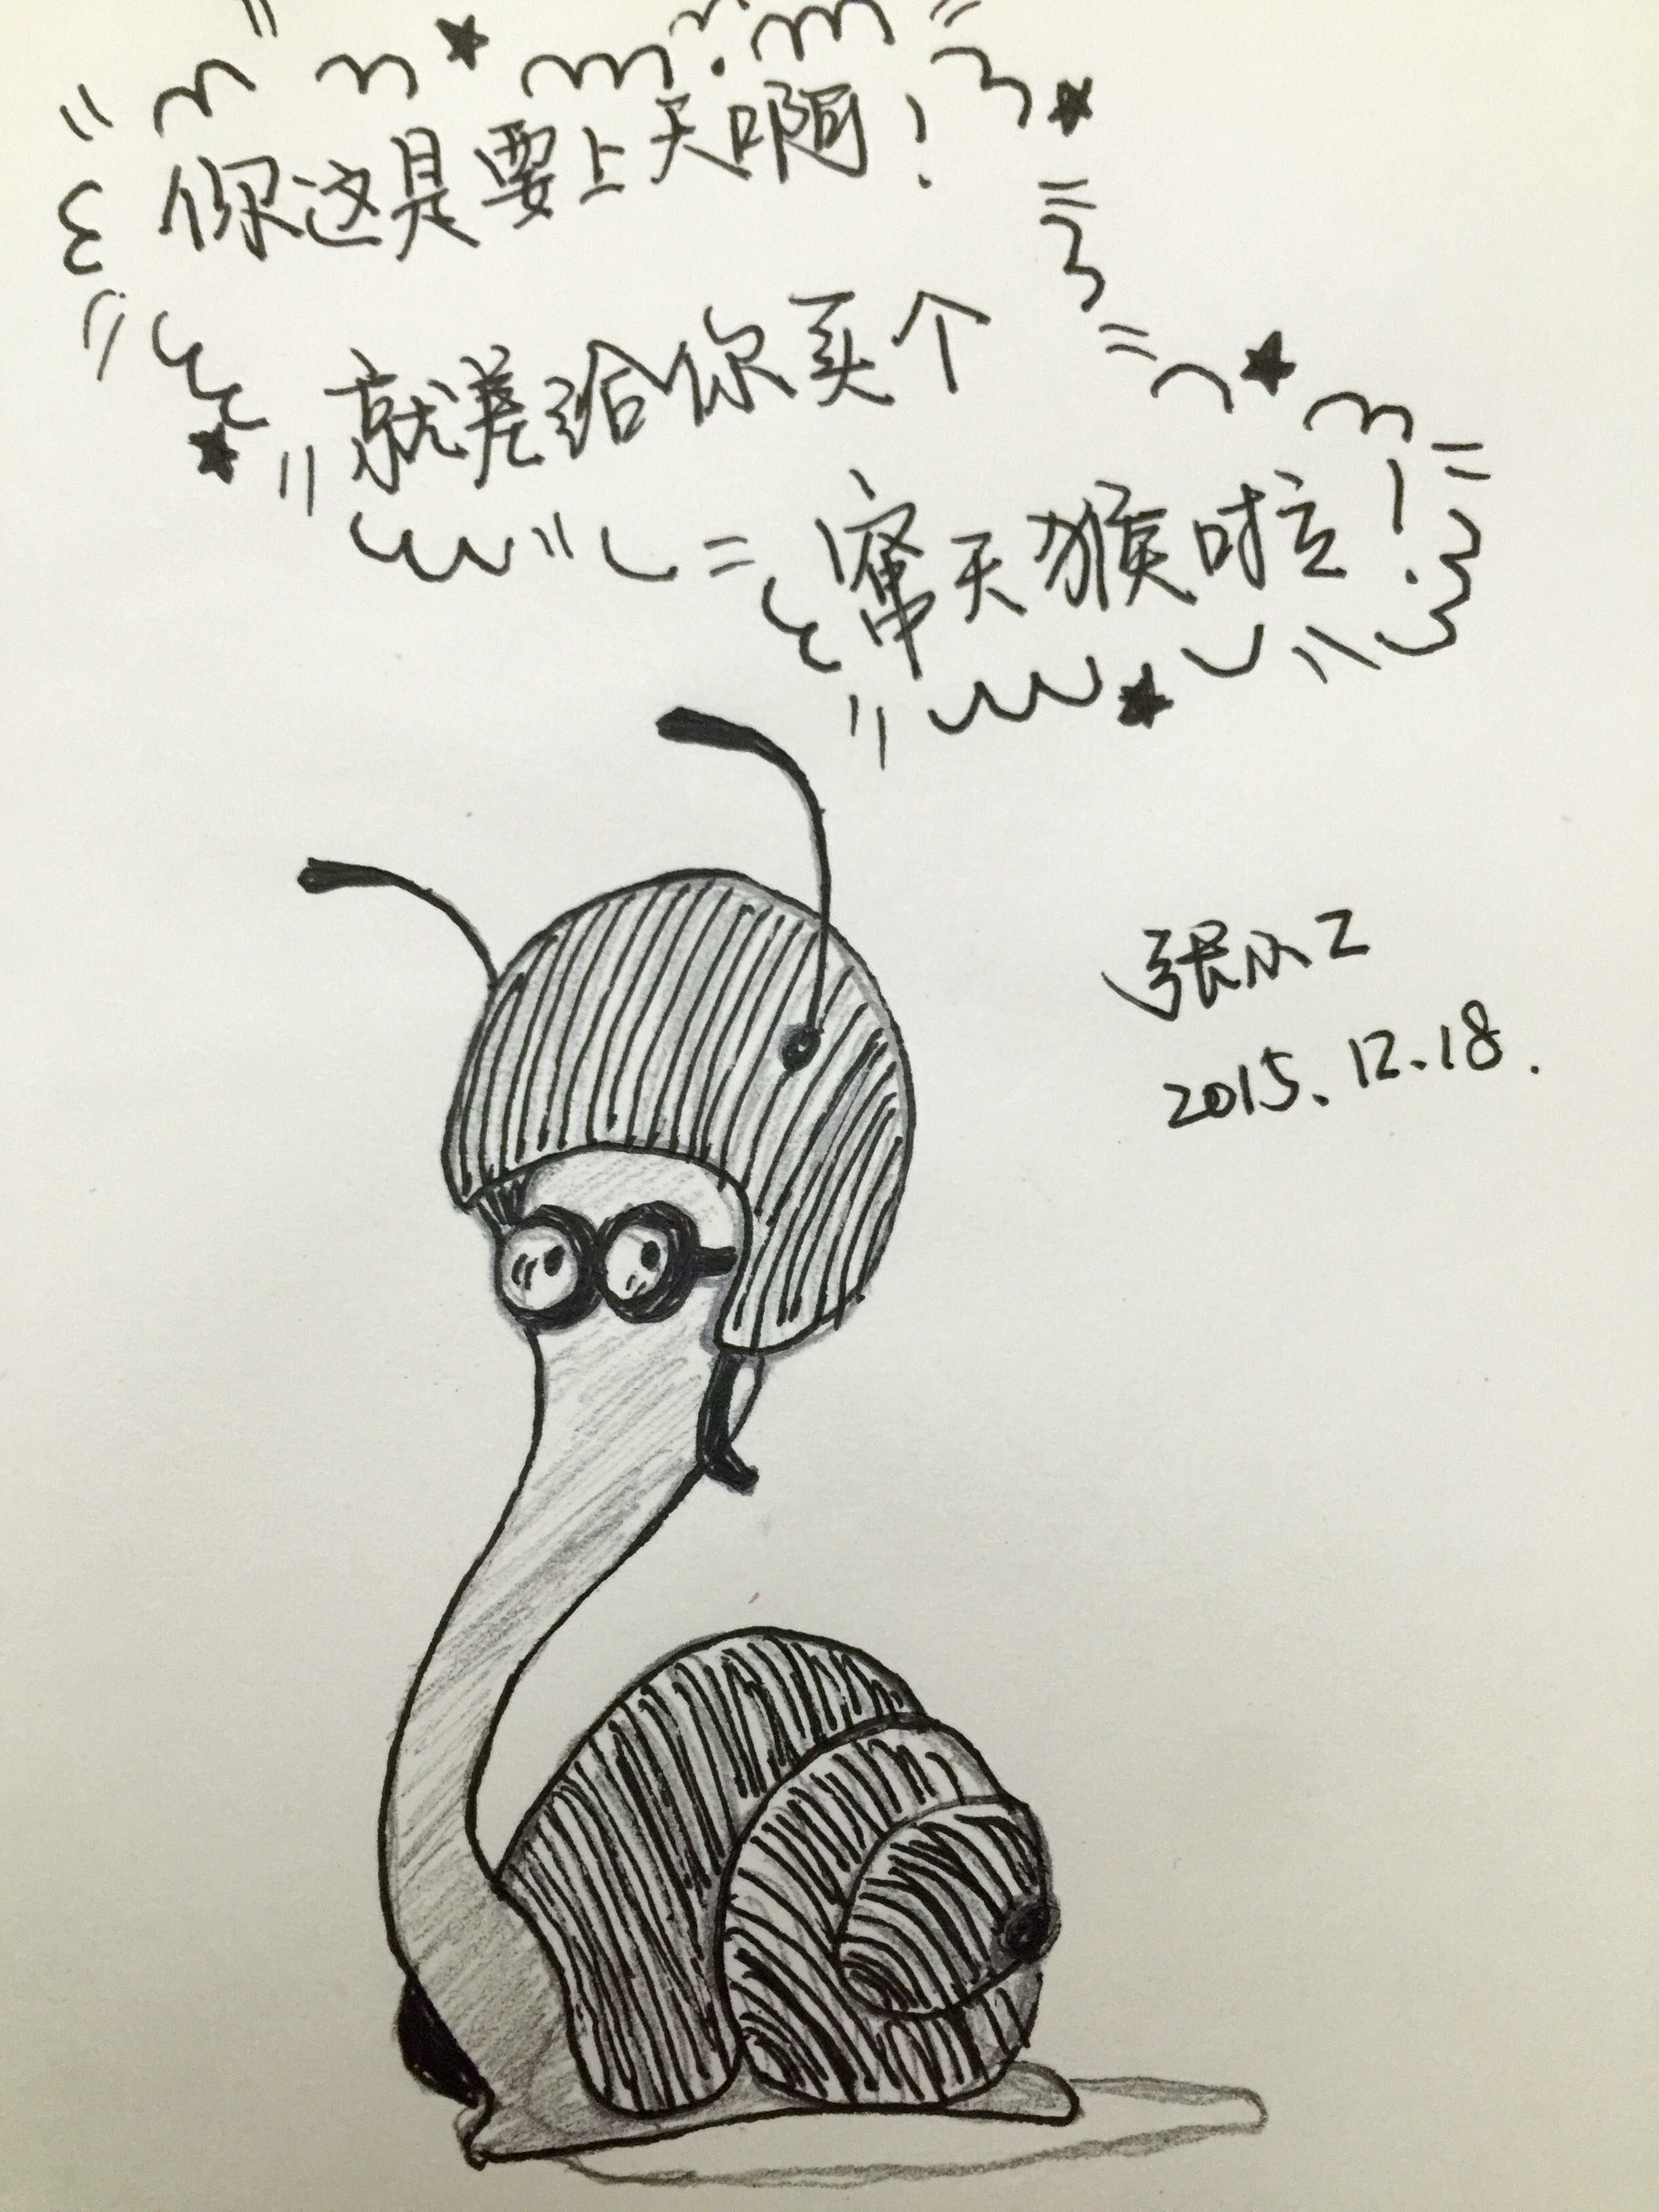 你这是要上天啊!
就差给你买个
窜天猴啦!
张小乙
2015.12.18.